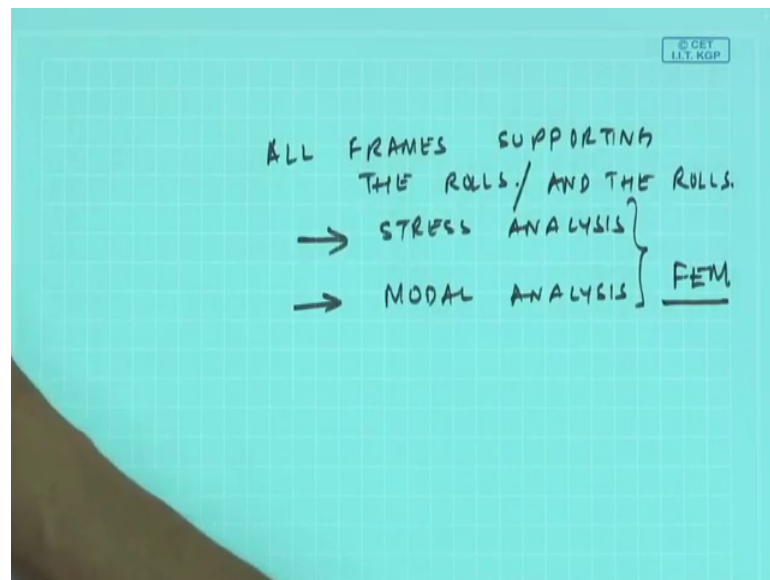 © CET
I.I.T. KGP
ALL FRAMES SUPPORTING
THE ROLLS./ AND THE ROLLS.
→ STRESS ANALYSIS
→ MODAL ANALYSIS } FEM